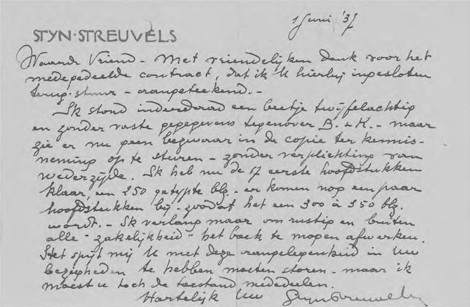 STYN·STREUVELS
1 Juni '37
Waarde Vriend - Met vriendelijken dank voor het
medegedeelde contract, dat ik U hierbij ingesloten
terug-stuur - aangeteekend. -
Ik stond inderdaad een beetje twijfelachtig
en zonder vaste gegevens tegenover B. & K. - maar
zie er nu geen bezwaar in de copie ter kennis-
neming op te sturen - zonder verplichting van
wederzijde. Ik heb nu de 17 eerste hoofdstukken
klaar, en 250 getypte blz. - er komen nog een paar
hoofdstukken bij - zoodat het een 300 à 350 blz.
wordt. - Ik verlang maar om rustig en buiten
alle "zakelijkheid" het boek te mogen afwerken.
Het spijt mij U met deze aangelegenheid in Uw
bezigheden te hebben moeten storen - maar ik
moest U toch de toestand mededelen.
Hartelijk Uw Stijn Streuvels